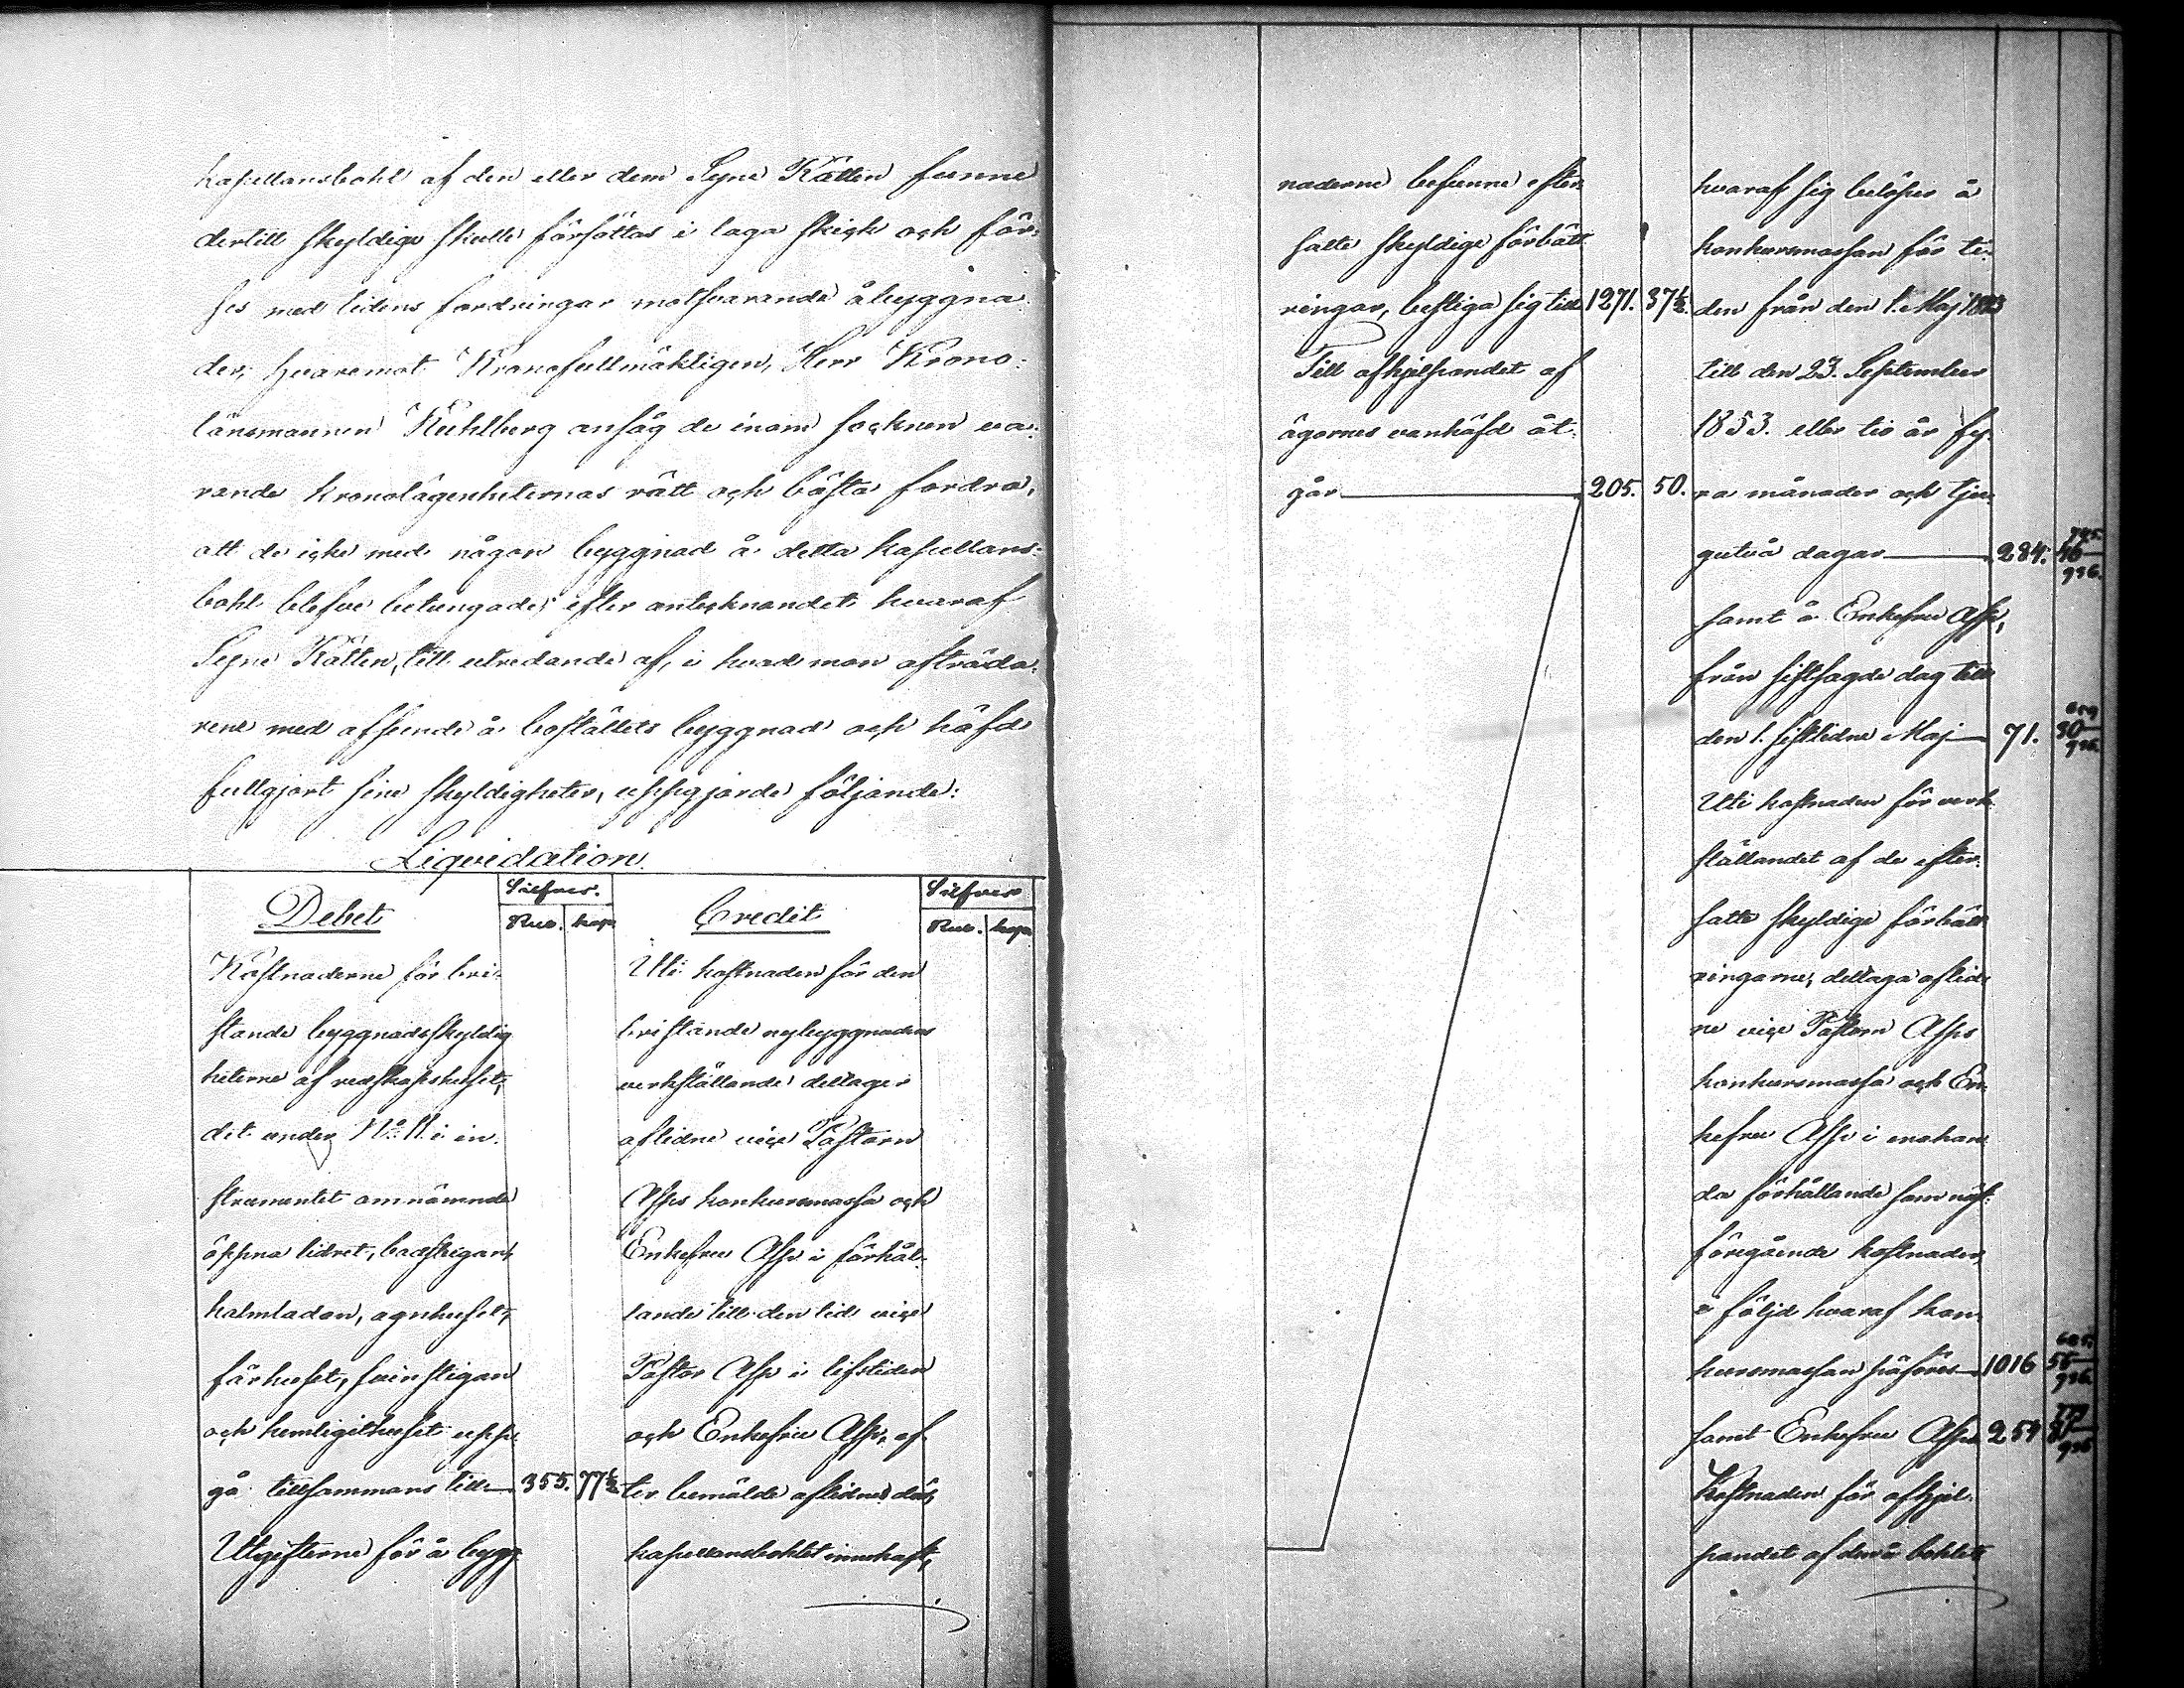 kapellansbohl af den eller dem Syne Rätten funne
dertill skyldige skulle försättas i laga skick och för-
ses med tidens fordringar motsvarande åbyggna-
der; hvaremot Kronofullmäktigen, Herr Krono-
länsmannen Kuhlberg ansåg de inom socknen va-
rande kronolägenheternas rätt och bästa fordra,
att de icke med någon byggnad å detta kapellans-
bohl blefve betungade; efter antecknandet hvaraf
Syne Rätten, till utredande af, i hvad mon afträda-
rene med afseende å boställets byggnad och häfd
fullgjort sine skyldigheter, uppgjorde följande:
Liquidation.
Debet
Silfver.
Rub. kop.
Credit
Silfver
Rub. kop.
Kostnaderne för bri-
stande byggnadsskyldig
heterne af redskapshuset,
det under No 11. i in-
strumentet omnämnde
öppna lidret, badstugan,
halmladan, agnhuset,
fårhuset, svinstigan
och hemlighuset uppe-
gå tillsammans till 355. 77½
Utgifterne för å bygg
Uti kostnaden för den
bristande nybyggnadens
verkställande deltager
aflidne vice Pastorn
Asps konkursmassa och
Enkefru Asp i förhål-
lande till den tid vice
Pastor Asp i lifstiden
och Enkefru Asp, ef-
ter bemälde aflidnes död,
kapellansbohlet innehaft,
naderne befunne efter-
satte skyldige förbätt
ringar, bestiga sig till 1271. 37½.
Till afhjelpandet af
ägornes vanhäfd åt-
går 205. 50.
hvaraf sig belöper å
konkursmassan för ti-
den från den 1. Maj 1843
till den 23. September
1853. eller tio år fy-
ra månader och tju-
gutvå dagar 284.
samt å Enkefru Asp,
från sistsagde dag till
den 1. sistlidne Maj 71.
Uti kostnaden för verk-
ställandet af de efter-
satte skyldige förbätt
ringarne, deltaga aflid-
ne vice Pastorn Asps
konkursmassa och En-
kefru Asp i enahan-
da förhållande som näst-
föregående kostnader,
i följd hvaraf kon-
kursmassan påföres 1016
samt Enkefru Asp 254
Kostnaden för afhjel-
pandet af den å bohlets